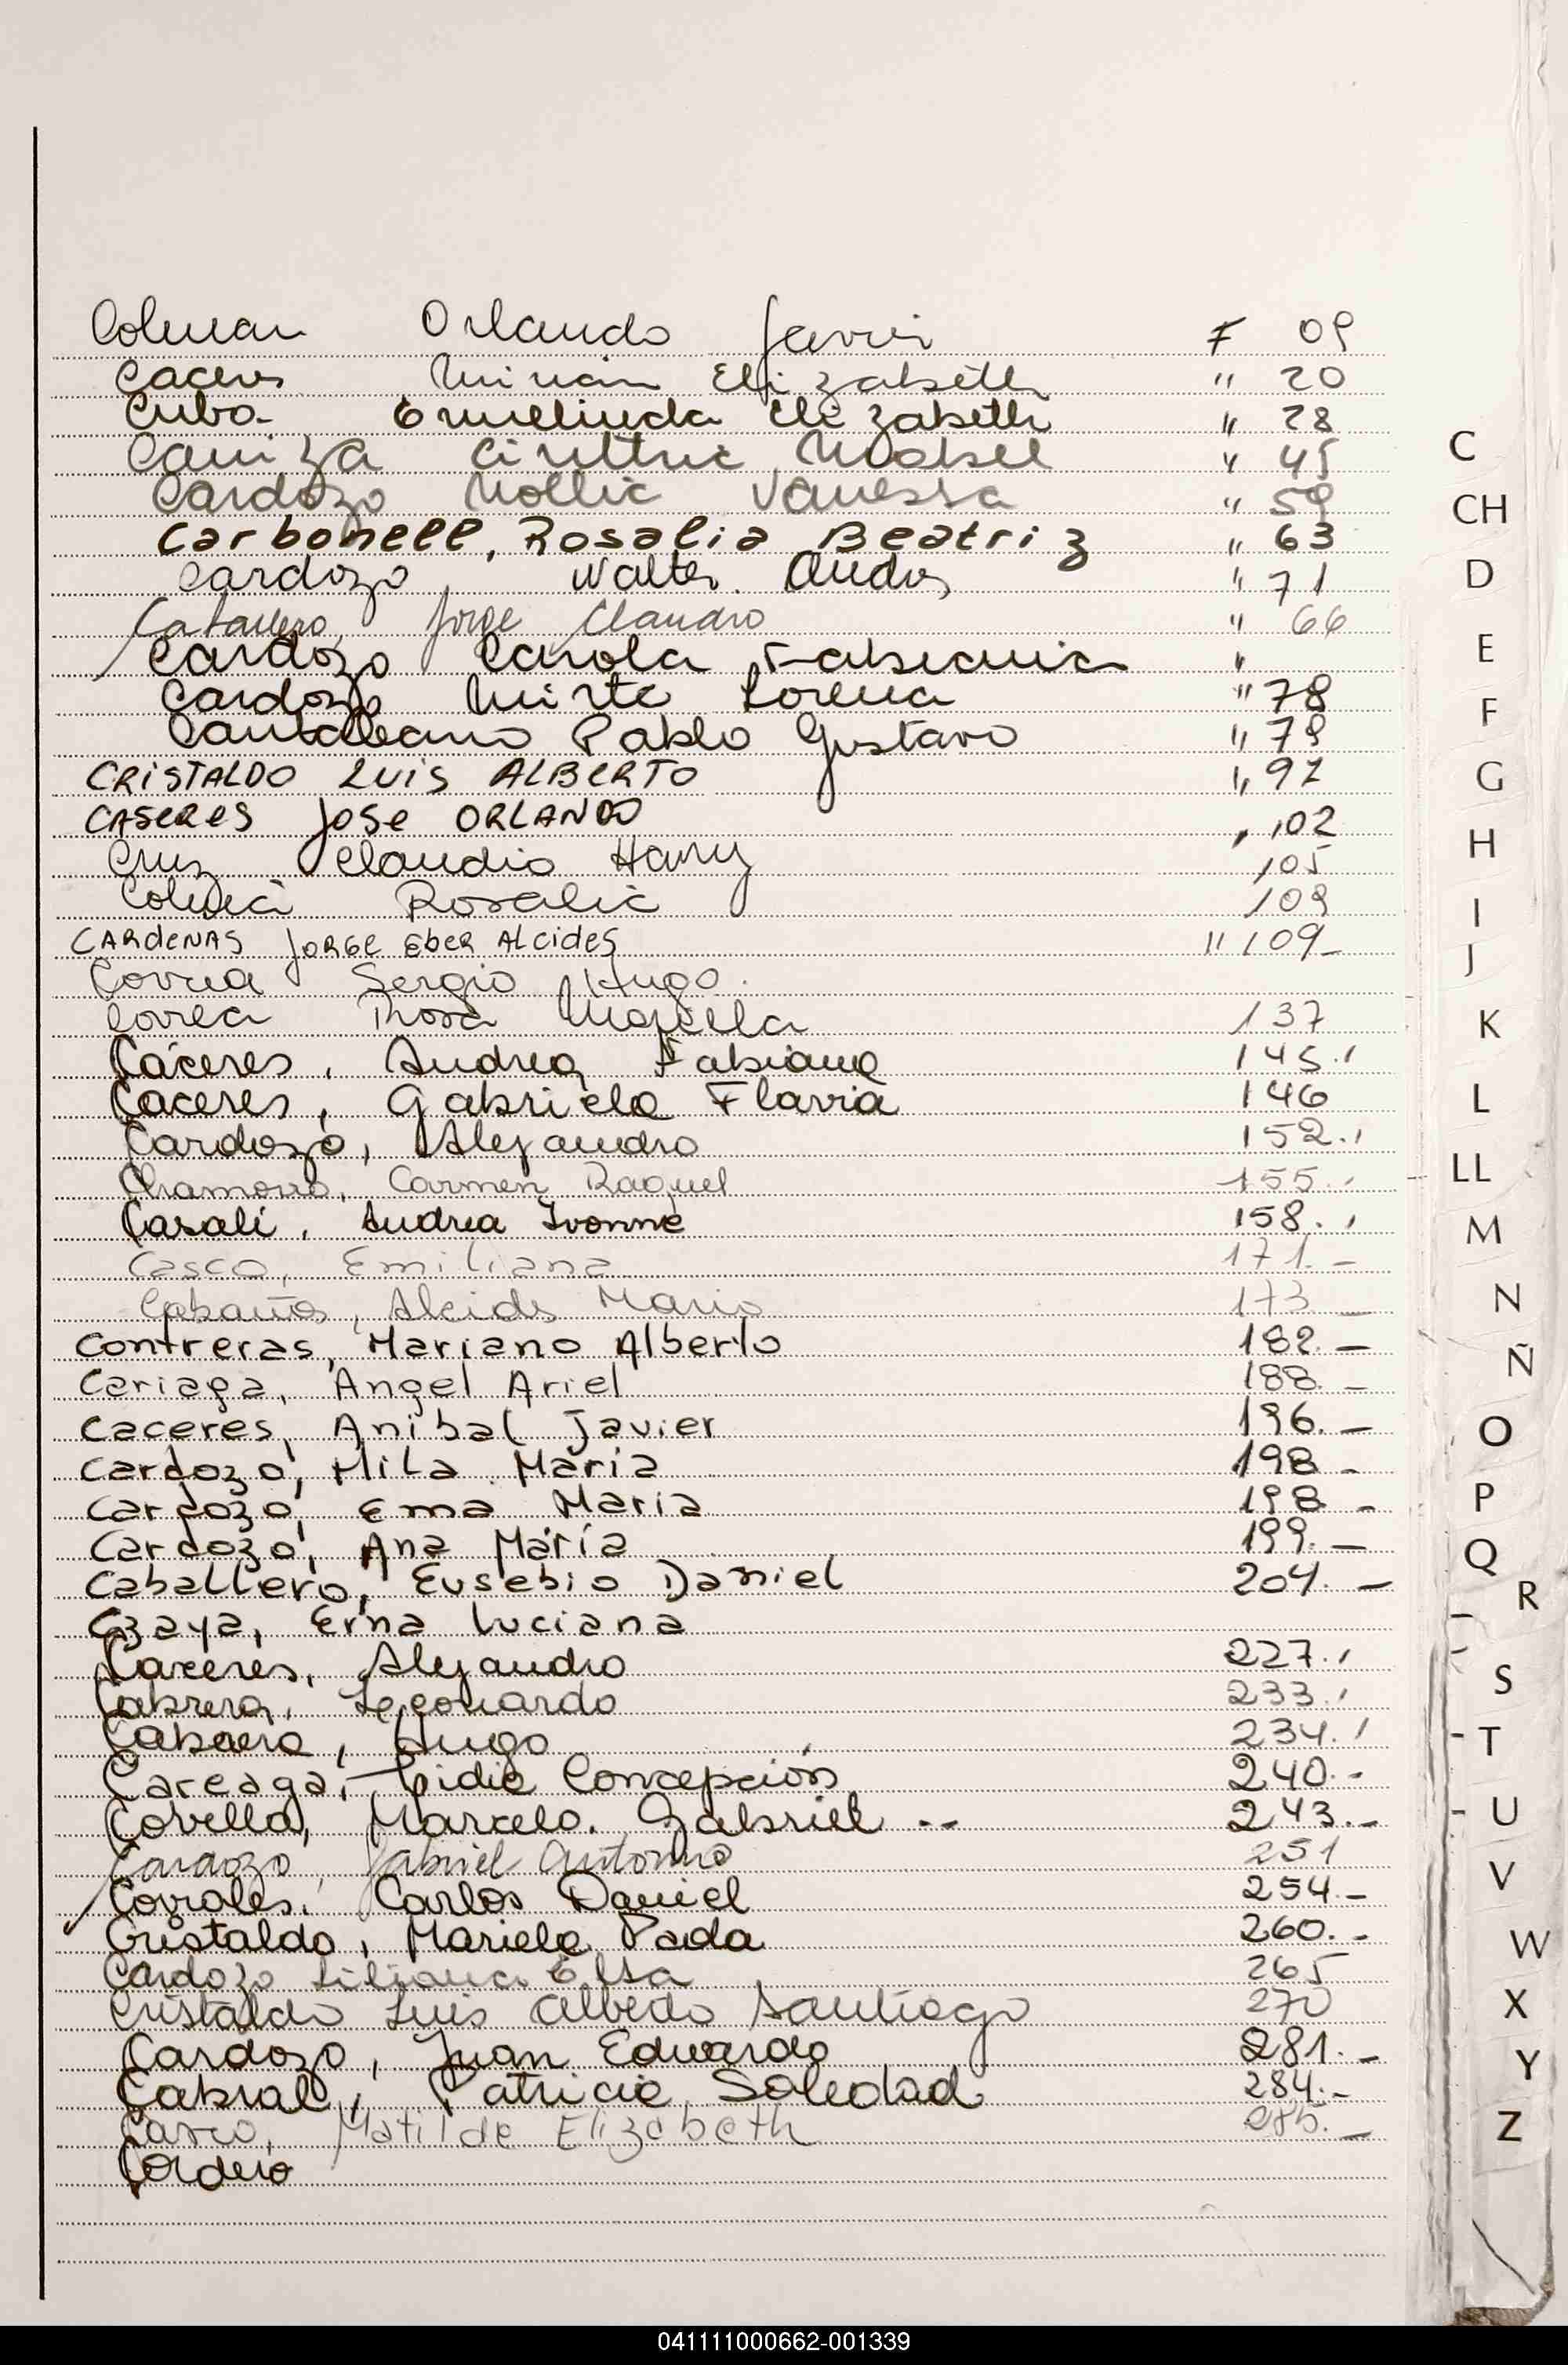 Colman Orlando Javier F 09
Caceres Mirian Elizabeth " 20
Cuba Ermelinda Elizabeth " 28
Caniza Mabel " 45
Cardozo Vanessa " 59
Carbonell, Rosalia Beatriz " 63
Cardozo, Walter Andres " 71
Jorge Claudio " 66
Cardozo Carola Fabiana "
Cardozo Mirta Lorena " 78
Pablo Gustavo " 79
CRISTALDO LUIS ALBERTO " 97
CASERES JOSE ORLANDO " 102
Cruz Claudio Hary 105
Rosalia 109
CARdeNAS JORGE EbeR ALcides " 109-
Correa Sergio Hugo.
Correa Rosa Mariela 137
Cáceres, Andrea Fabiana 145.,
Caceres, Gabriela Flavia 146
Cardozo, Alejandro 152.,
Chamorro, Carmen Raquel 155.,
Casali, Andrea Ivonne 158.,
Casco, Emiliana 171.-
Cabañas, Alcides Mario 173 -
Contreras, Mariano Alberto 182.-
Cariaga, Angel Ariel 188.-
Caceres, Anibal Javier 196.-
Cardozo, Mila Maria 198 -
Cardozo, Ema Maria 198 -
Cardozo, Ana María 199.-
Caballero, Eusebio Daniel 204.-
Czaya, Erna Luciana
Caceres, Alejandro 227.,
Cabrera, Leonardo 233.,
Cabrera, Hugo 234.,
Careaga, Lidia Concepción 240.-
Covella, Marcelo Gabriel -- 243.-
Cardozo, Gabriel Antonio 251
Corrales, Carlos Daniel 254.-
Cristaldo, Mariela Paola 260.-
Cardozo Liliana Elsa 265
Cristaldo Luis Alberto Santiago 270
Cardozo, Juan Eduardo 281.-
Cabral, Patricia Soledad 284.-
Casco, Matilde Elizabeth 285.-
Cordero
C
CH
D
E
F
G
H
I
J
K
L
LL
M
N
Ñ
O
P
Q
R
S
T
U
V
W
X
Y
Z
041111000662-001339